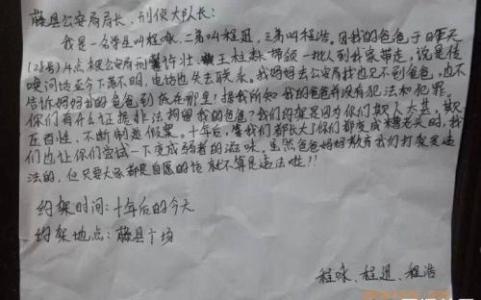 藤县公安局局长，刑侦大队长：
我是一名学生叫程咏，二弟叫程迅，三弟叫程浩。因我的爸爸于昨天
(21号)4点被公安局刑警许壮、王柱款带领一批人到我家带走，说是传
唤问话至今下落不明，电话也失去联系，我妈妈去公安局找也见不到爸爸，也不
告诉妈妈我的爸爸到底在哪里！据我所知我的爸爸并没有犯法和犯罪
你们有什么证据非法拘留我的爸爸？我们约架是因为你们欺人太甚，欺
压百姓，不断制造假案，十年后，等我们都长大了你们都变成糟老头时，我
们也让你们尝试一下变成弱者的滋味。虽然爸爸妈妈教育我们打架是违
法的，但只要大家都是自愿的话就不算是违法啦！！
约架时间：十年后的今天
约架地点：藤县广场
程咏、程迅、程浩